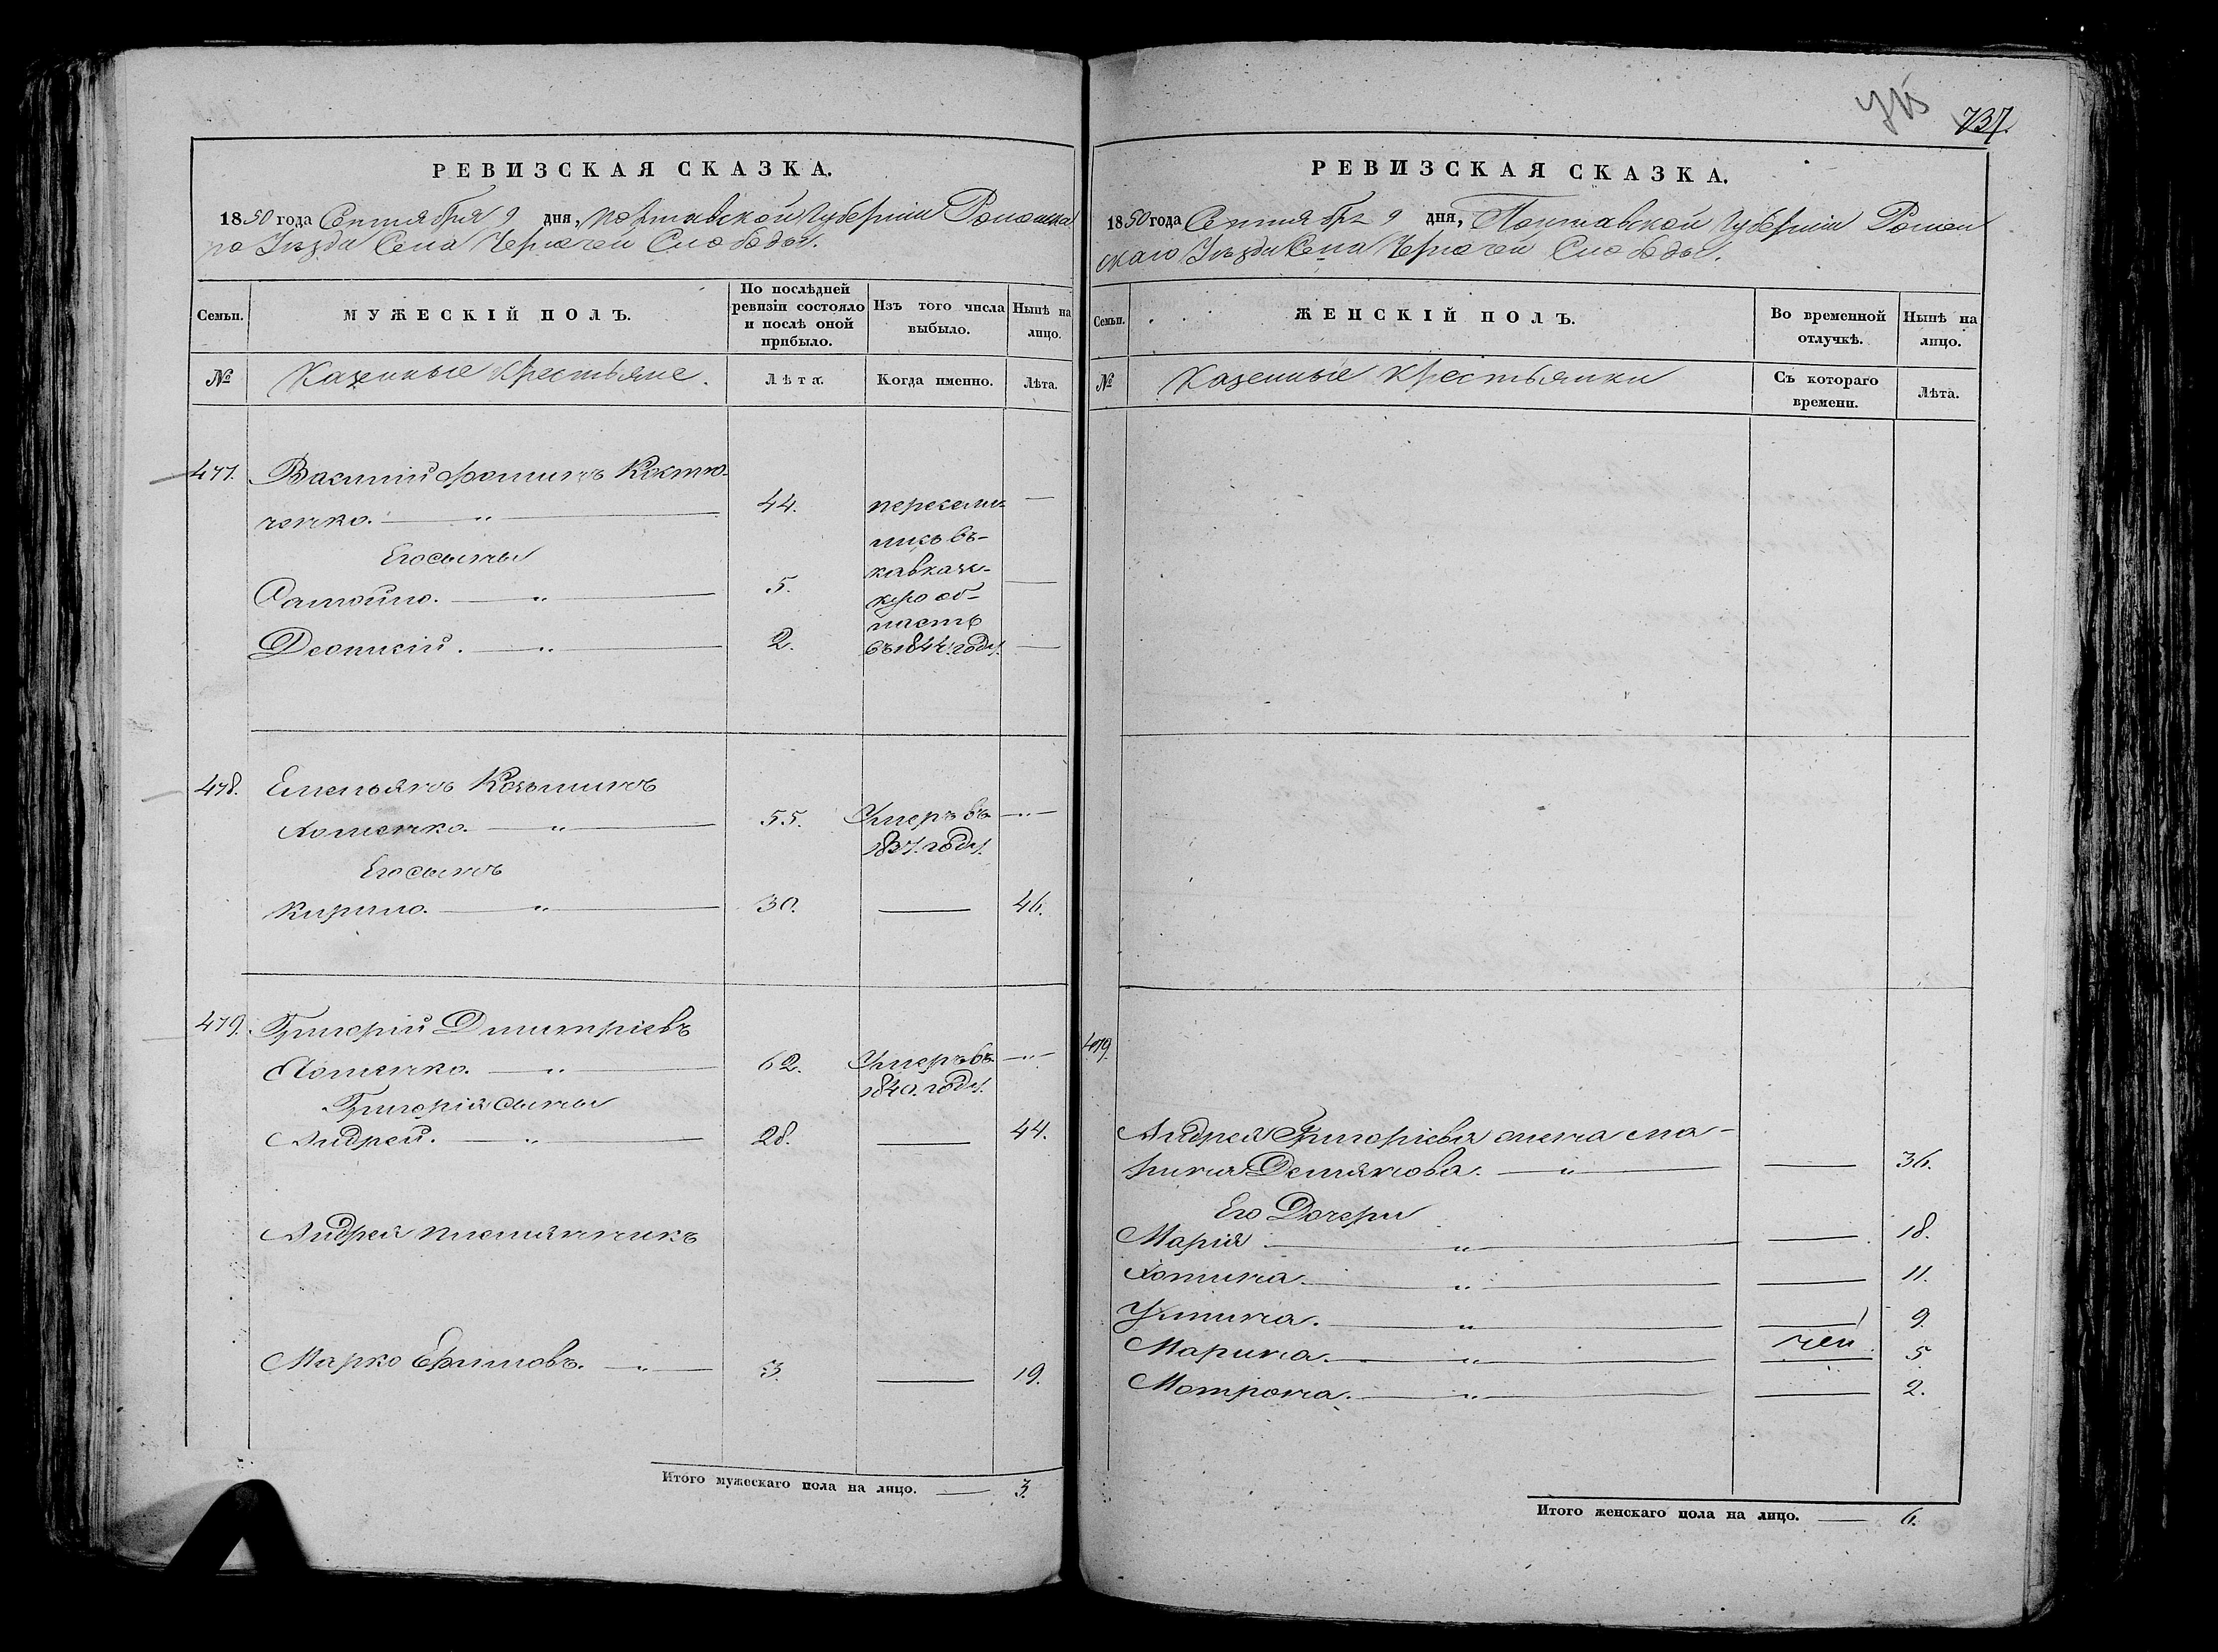 РЕВИЗСКАЯ СКАЗКА.
1850 года Сентября 9 дня, Полтавской Губернии Роменска
го Уезда Села Чернечей Слободы.
Семьи.
МУЖЕСКІЙ ПОЛЪ.
По послѣдней ревизіи состояло и послѣ оной прибыло.
Изъ того числа выбыло.
Нынѣ на лицо.
№
Казенные крестьяне.
Лѣта.
Когда именно.
Лѣта.
477. Василий Фоминъ Костю-
ченко. 44. переселил
лись въ
Его сыны
кавказс-
Самойло. 5. кую об-
ласть
Деонисій. 2. въ 1844. году.
478. Емельянъ Козьминъ
Хоменко. 55. Умеръ въ
1837. году.
Его сынъ
Кирило. 30. 46.
479. Григорій Дмитріевъ
Хоменко. 62. Умеръ въ
1840. году.
Григорія сыны
Андрей. 28. 44.
Андрея племянникъ
Марко Ефимовъ. 3. 19.
Итого мужескаго пола на лицо. 3.
737.
РЕВИЗСКАЯ СКАЗКА.
1850 года Сентября 9 дня, Полтавской Губернии Ромен
скаго Уезда Села Чернечей Слободы.
Семьи.
ЖЕНСКІЙ ПОЛЪ.
Во временной отлучкѣ.
Нынѣ на лицо.
№
Казенные крестьянки
Съ котораго времени.
Лѣта.
479.
Андрея Григоріева жена Ма-
рина Демянова. 36.
Его Дочери
Марія 18.
Хотина. 11.
Устина. 9.
Марина. 5.
Мотрона. 2.
Итого женскаго пола на лицо. 6.